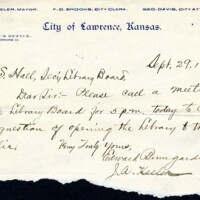 ELER, MAYOR. F. D. BROOKS, CITY CLERK. GEO. DAVIS, CITY AT
CITY OF LAWRENCE, KANSAS.
Sept. 29, 1
S. Hall, Sec'y Library Board,
Dear Sir:- Please call a meet
Library Board for 5 p.m. today to
question of opening the Library to th
lic.
Very Truly Yours,
Edward Bumgard
J. A. Keeler